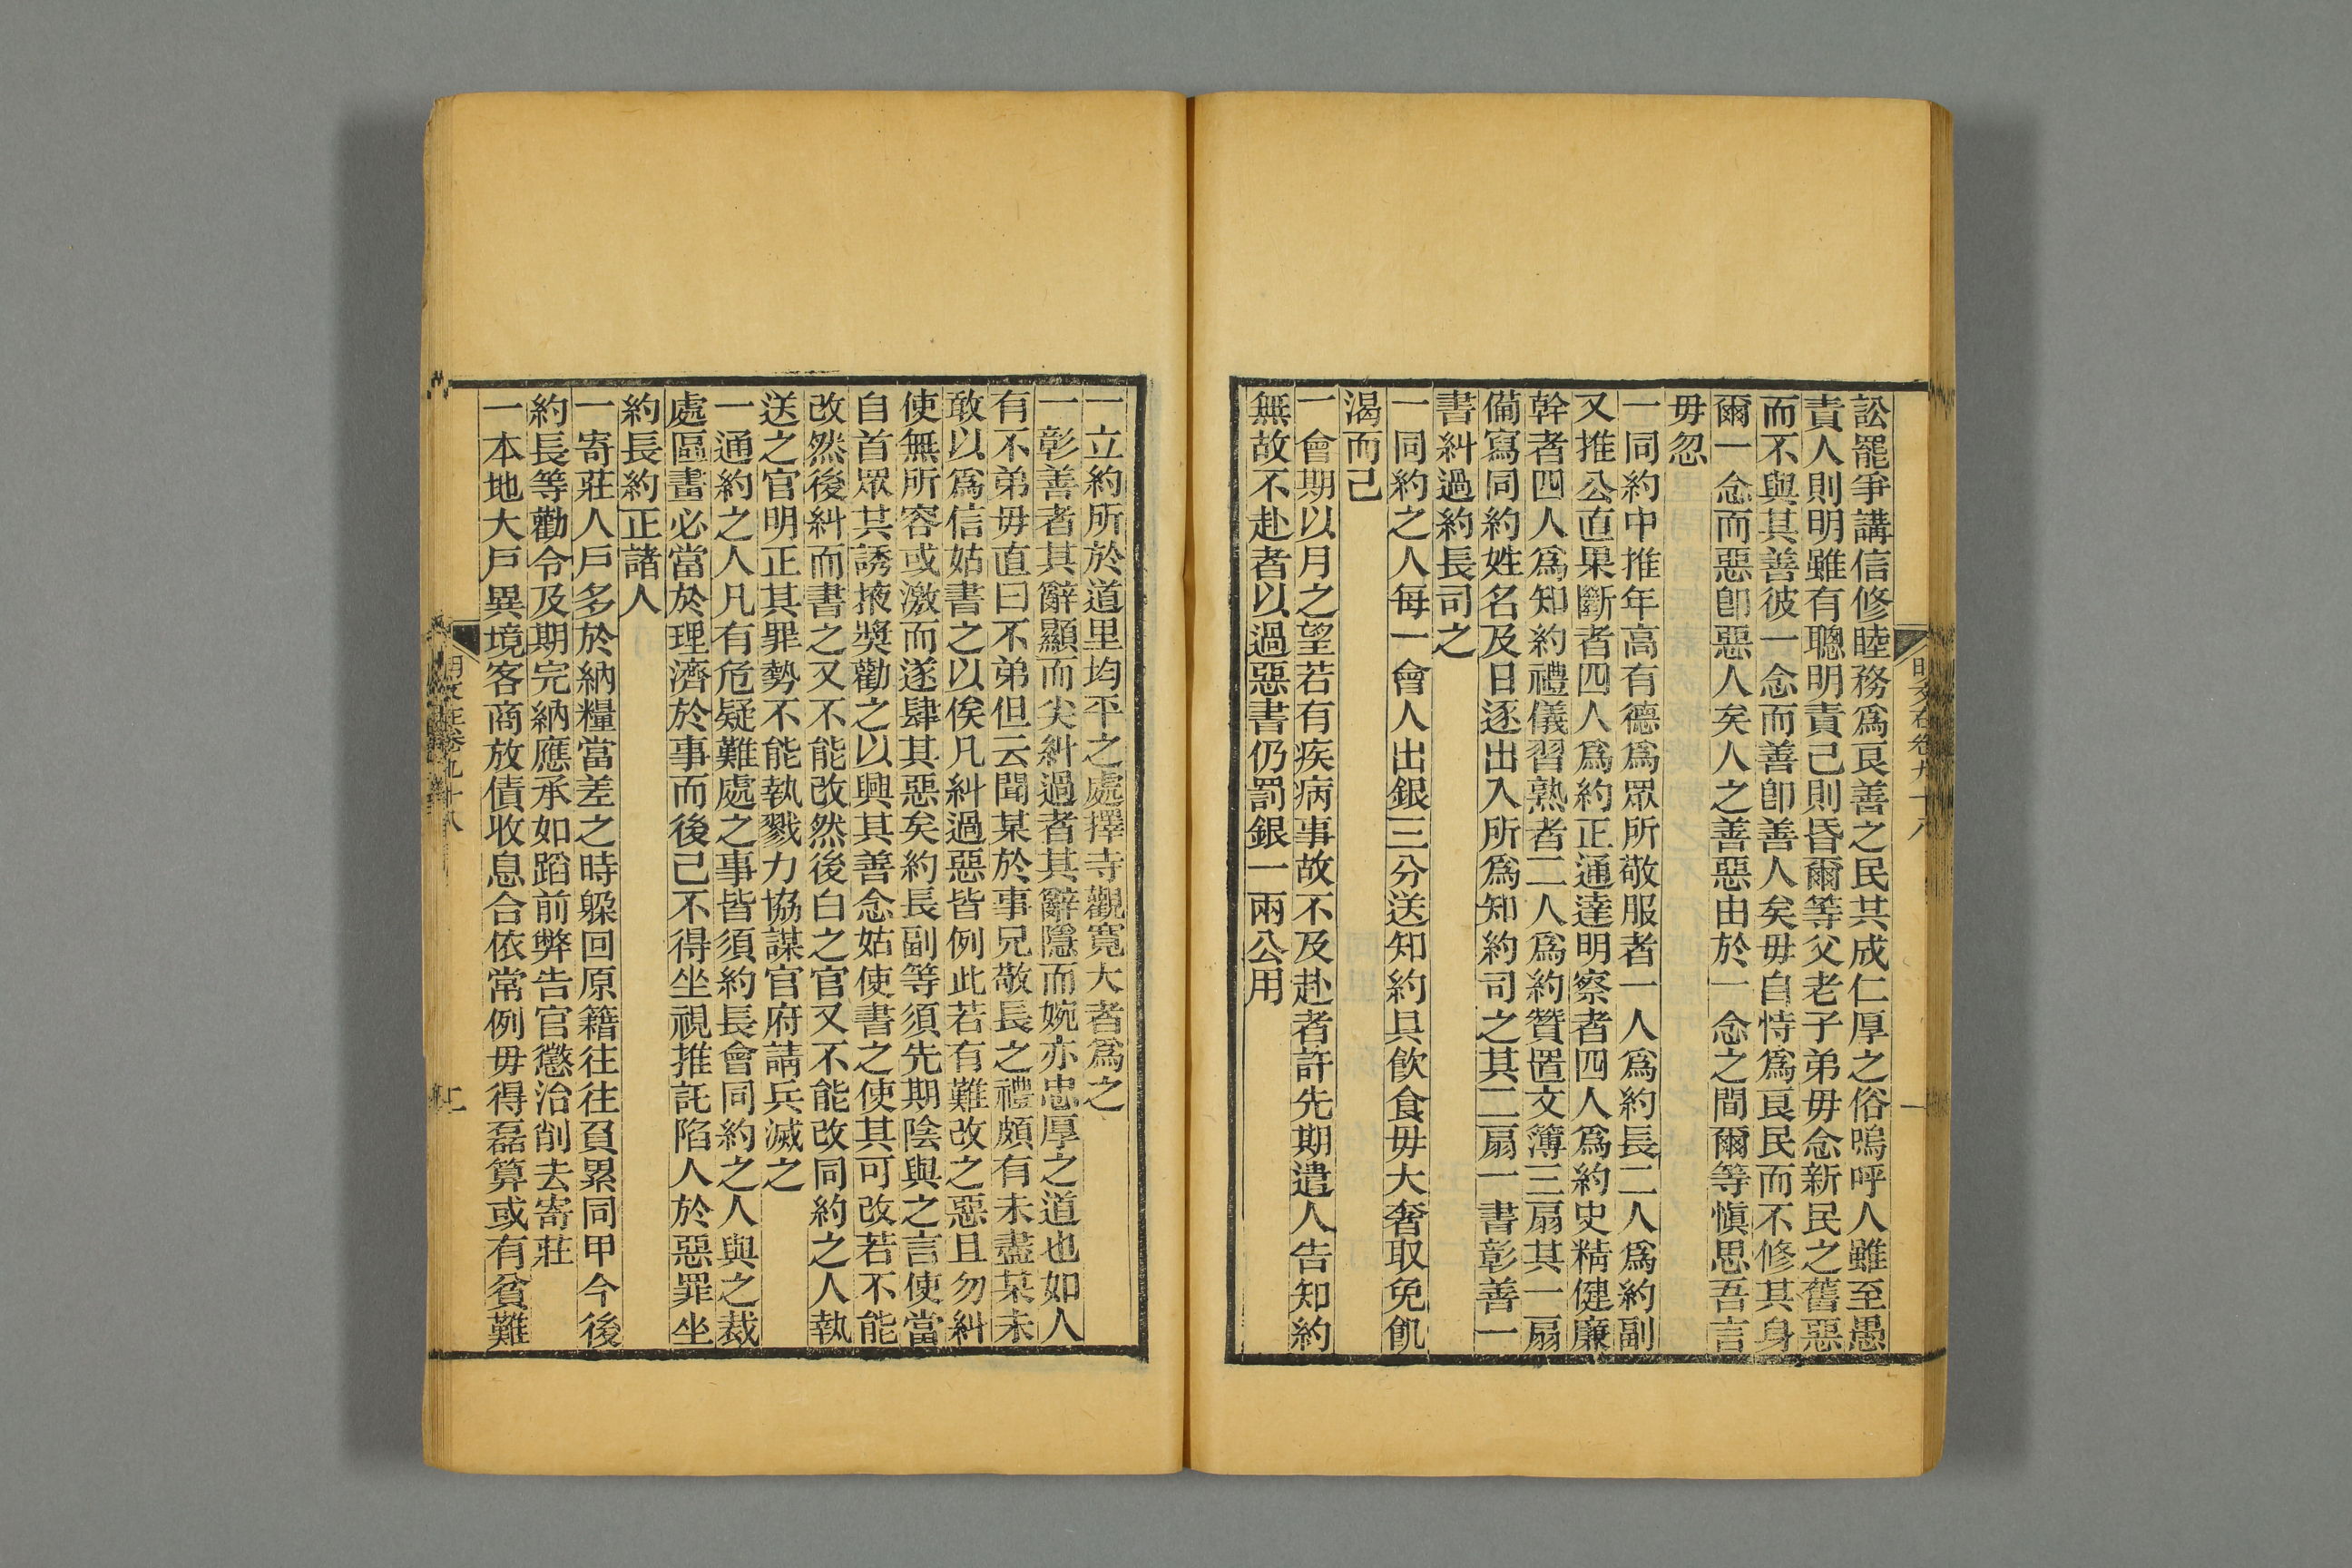 訟罷爭講信修睦務爲良善之民共成仁厚之俗嗚呼人雖至愚
責人則明雖有聰明責己則昏爾等父老子弟毋念新民之舊惡
而不與其善彼一念而善卽善人矣毋自恃爲良民而不修其身
爾一念而惡卽惡人矣人之善惡由於一念之間爾等愼思吾言
毋忽
一同約中推年高有德爲眾所敬服者一人爲約長二人爲約副
又推公直果斷者四人爲約正通達明察者四人爲約史精健廉
幹者四人爲知約禮儀習熟者二人爲約贊置文簿三扇其一扇
備寫同約姓名及日逐出入所爲知約司之其二扇一書彰善一
書糾過約長司之
一同約之人每一會人出銀三分送知約具飮食毋大奢取免飢
渴而己
一會期以月之望若有疾病事故不及赴者許先期遣人告知約
無故不赴者以過惡書仍罰銀一兩公用
一立約所於道里均平之處擇寺觀寬大者爲之
一彰善者其辭顯而尖糾過者其辭隱而婉亦忠厚之道也如人
有不弟毋直曰不弟但云聞某於事兄敬長之禮頗有未盡某未
敢以爲信姑書之以俟凡糾過惡皆例此若有難改之惡且勿糾
使無所容或激而遂肆其惡矣約長副等須先期陰與之言使當
自首眾其誘掖獎勸之以興其善念姑使書之使其可改若不能
改然後糾而書之又不能改然後白之官又不能改同約之人執
送之官明正其罪勢不能執戮力協謀官府請兵滅之
一通約之人凡有危疑難處之事皆須約長會同約之人與之裁
處區畫必當於理濟於事而後己不得坐視推託陷人於惡罪坐
約長約正諸人
一寄莊人戶多於納糧當差之時躲回原籍往往負累同甲今後
約長等勸令及期完納應承如蹈前弊告官懲治削去寄莊
一本地大戶異境客商放債收息合依常例毋得磊算或有貧難
明文在卷九十八